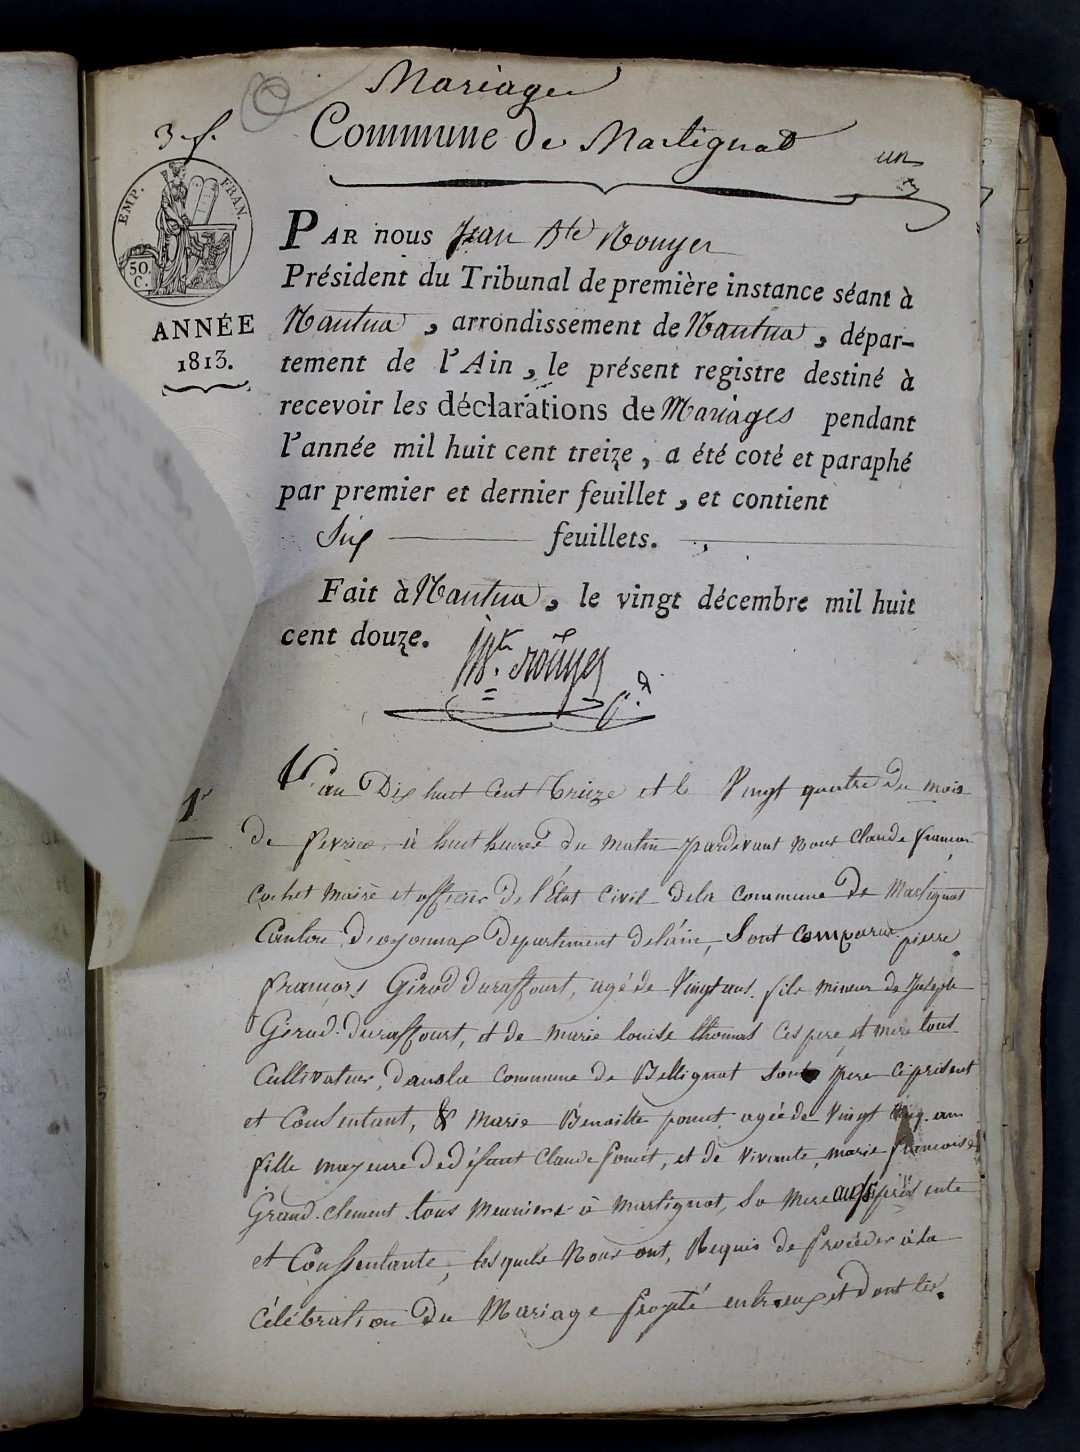 Mariages
3 f.
Commune de Martignat
un
EMP. FRAN.
50.
C.
ANNÉE
1813.
PAR nous Jean Bte Rouyer
Président du Tribunal de première instance séant à
Nantua, arrondissement de Nantua, dépar-
tement de l'Ain, le présent registre destiné à
recevoir les déclarations de Mariages pendant
l'année mil huit cent treize, a été coté et paraphé
par premier et dernier feuillet, et contient
Six feuillets.
Fait à Nantua, le vingt décembre mil huit
cent douze.
Bte. Rouyer
1r
L'an Dix huit Cent Treize et le Vingt quatre du mois
de fevrier à huit heures du matin pardevant nous Claude françois
Cochet maire et officier de l'État Civil dela commune de Martignat
Canton d'oyonnax departement delain, Sont comparus pierre
françois Girod duraffourt, agé de Vingt ans. fils mineur de Joseph
Girod-duraffourt, et de marie louise thomas Ces pere et mere tous
Cultivateurs, dansla commune de Bellignat Sont pere ci présent
et Consentant, & Marie Benoitte ponct agée de Vingt ans
fille mayeure de defaut Claude ponct, et de vivante, marie françoise
Grand-clement tous Meuniers à Martignat, Sa Mere aussi présente
et Consentante, lesquels Nous ont, Requis de procéder à la
Célébration du Mariage projeté entreux et dont les.